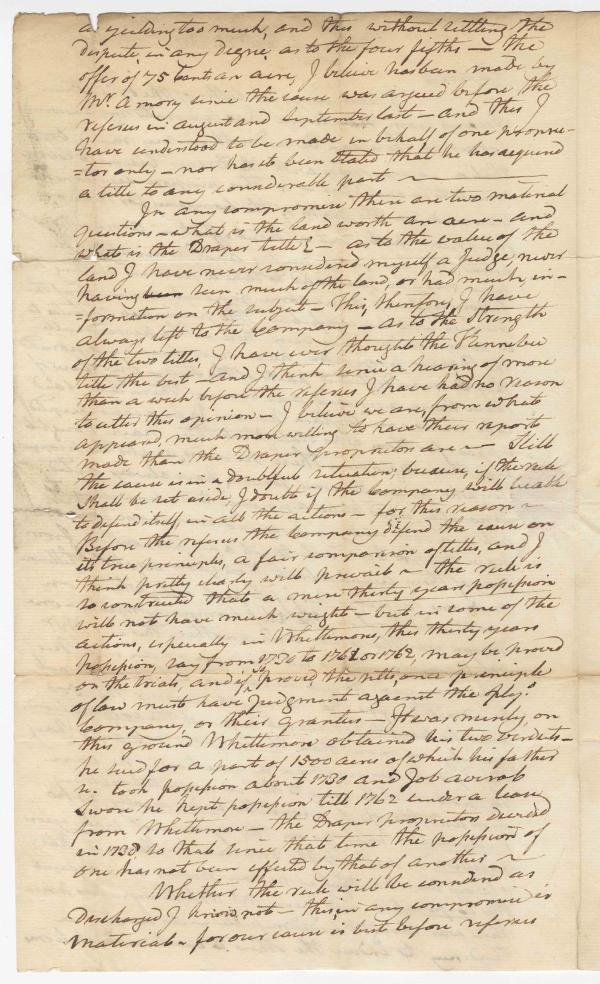 as yielding too much, and this without settling the
dispute, in any degree, as to the four fifths — the
offer of 75 Cents an acre, I believe has been made by
Mr. Amory since the cause was argued before the
referees in august and September last — and this I
have understood to be made in behalf of one proprie-
=tor only — nor has it been stated that he has acquired
a title to any considerable part —
In any compromise there are two material
questions — what is the land worth an acre — and
what is the Draper title? — as to the value of the
land I have never considered myself a judge, never
having been seen much of the land, or had much in-
=formation on the subject — This, therefore, I have
always left to the Company — as to the Strength
of the two titles, I have ever thought the Kennebec
title the best — and I think since a hearing of more
than a week before the referees I have had no reason
to alter this opinion — I believe we are, from what
appeared, much more willing to have their report
made than the Draper proprietors are — Still
the cause is in a doubtful situation; because, if the rule
shall be set aside, I doubt if the Company will be able
to defend itself, in all the actions — for this reason —
Before the referees the Company defend the cause on
its true principles, a fair comparison of titles, and I
think pretty clearly will prevail — the rule is
so construed that a mere thirty years possession
will not have much weight — but in some of the
actions, especially in Whittemores, this thirty years
possession, say from 1730 to 1761 or 1762, may be proved
on the trials, and if proved, the , on a principle
of law must have judgment against the Ply.o
Company, or their grantees — It was merely, on
this ground Whittemore obtained his two verdicts —
he sued for a part of 1500 acres of which his father
took possession about 1730 and Job Averab
swore he kept possession till 1762 under a lease
from Whittemore — the Draper proprietors divided
in 1738 so that since that time the possession of
one has not been effected by that of another —
Whether the rule will be considered as
Discharged I know not — this in any compromise is
material — for our cause is best before referees